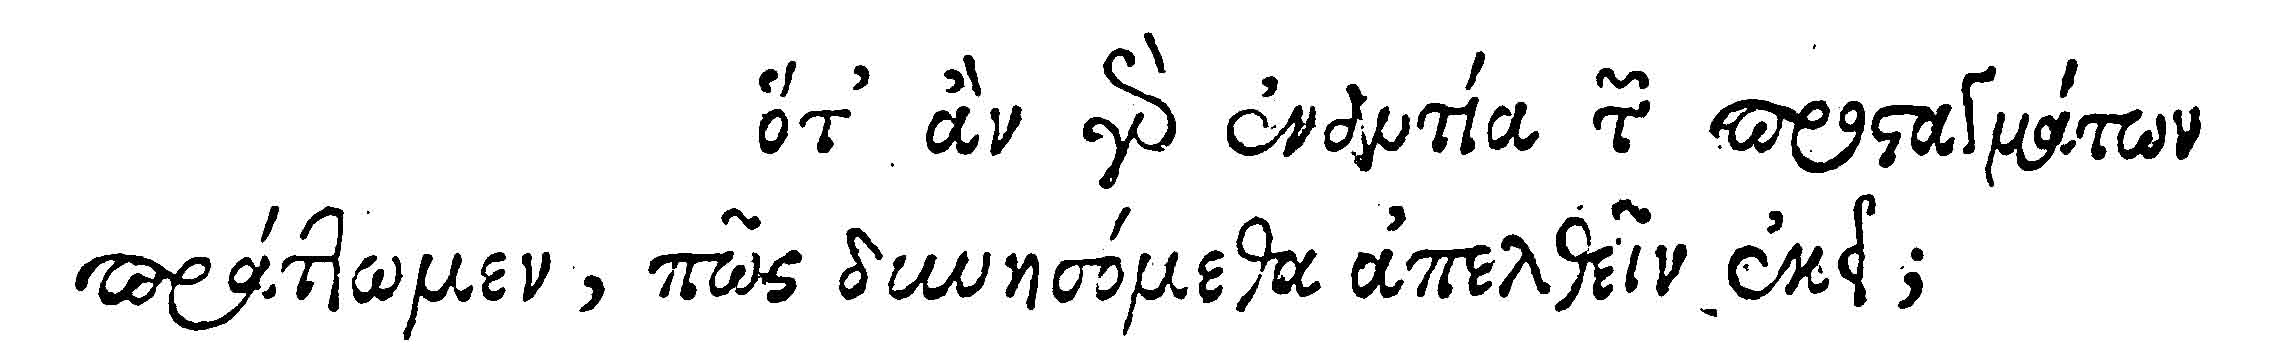 ὅτ’ ἂν γὰρ ἐναντία τῶν προσταγμάτων
πράττωμεν, πῶς δυνησόμεθα ἀπελθεῖν ἐκεῖ;